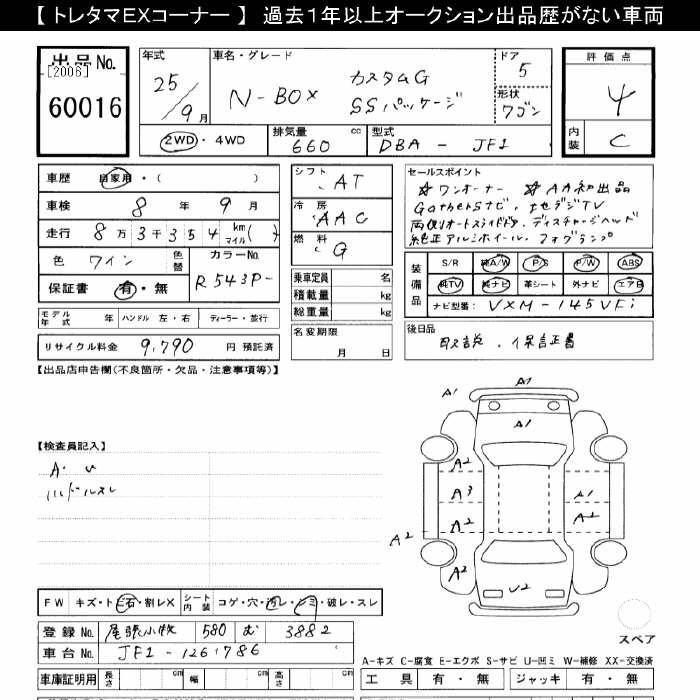 【 トレタマEXコーナー 】 過去1年以上オークション出品歴がない車両
出品 No.
[2006]
60016
年式
25/9月
車名・グレード
N-BOX カスタムG
SSパッケージ
ドア
5
形状
ワゴン
②WD・4WD
排気量
660 cc
型式
DBA - JF1
評価点
4
内装
C
車歴 自家用・( )
車検 8 年 9 月
走行 8万3千354 km マイル( )
色 ワイン 色替
カラーNo.
R543P-
保証書 有・無
モデル年式 年 ハンドル 左・右 ディーラー・並行
リサイクル料金 9,790 円 預託済
シフト
AT
冷房
AAC
燃料
G
乗車定員 名
積載量 kg
総重量 kg
名変期限
月 日
セールスポイント
☆ワンオーナー ☆AA初出品
Gathersナビ、地デジTV
両側オートスライドドア、ディスチャージヘッド
純正アルミホイール、フォグランプ
装備品
S/R 純A/W P/S P/W ABS
純TV 純ナビ 革シート 外ナビ エアB
ナビ型番: VXM-145VFi
後日品
取説、保証書
【出品店申告欄(不良箇所・欠品・注意事項等)】
【検査員記入】
A・U
ハンドルスレ
A1
A1
A1
A2
A3
A1
A2
A2
A2
A2
A2
U2
スペア
FW キズ・ト ビ石・割レX シート内装 コゲ・穴・汚レ・シミ・破レ・スレ
登録 No. 尾張小牧 580 む 3882
車台 No. JF1-1261786
車庫証明用 長さ cm 幅 cm 高さ cm
A-キズ C-腐食 E-エクボ S-サビ U-凹ミ W-補修 XX-交換済
工具 有・無 ジャッキ 有・無